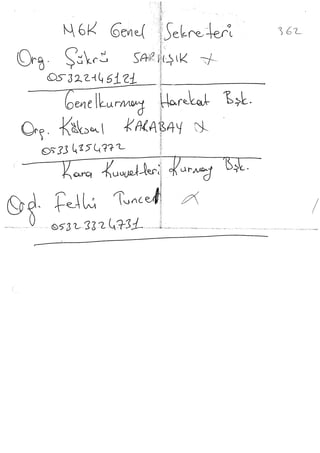 MGK Genel Sekreteri 362
Org. Şükrü SARIIŞIK
05322145121
Genelkurmay Harekat Bşk.
Org. Köksal KARABAY
05334354772
Kara Kuvvetleri Kurmay Bşk.
Orgl. Fethi Tuncel
05323324731